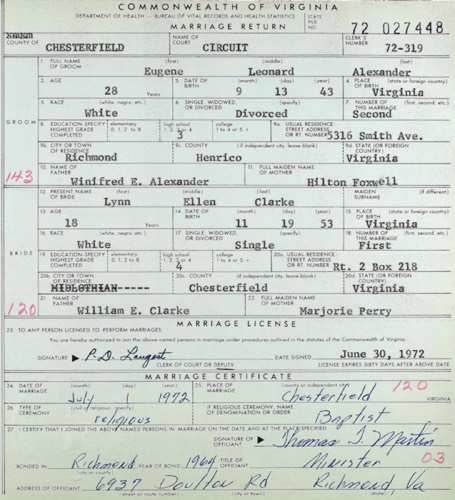 COMMONWEALTH OF VIRGINIA
DEPARTMENT OF HEALTH — BUREAU OF VITAL RECORDS AND HEALTH STATISTICS
MARRIAGE RETURN
STATE FILE NO. 72 027448
COUNTY OF CHESTERFIELD NAME OF COURT CIRCUIT CLERK'S NUMBER 72-319
1. FULL NAME OF GROOM (first) (middle) (last)
Eugene Leonard Alexander
2. AGE 3. DATE OF BIRTH (month) (day) (year) 4. PLACE OF BIRTH (state or foreign country)
28 Years 9 13 43 Virginia
5. RACE (white, negro, etc.) 6. SINGLE, WIDOWED, OR DIVORCED 7. NUMBER OF THIS MARRIAGE (First, second, etc.)
White Divorced Second
GROOM
8. EDUCATION SPECIFY HIGHEST GRADE COMPLETED elementary 0, 1, 2 to 8 high school 1, 2, 3, or 4 college 1 to 4 or 5+ 9a. USUAL RESIDENCE STREET ADDRESS OR RT. NUMBER
3 5316 Smith Ave.
9b. CITY OR TOWN OF RESIDENCE 9c. COUNTY (if independent city, leave blank) 9d. STATE (OR FOREIGN COUNTRY)
Richmond Henrico Virginia
143
10. NAME OF FATHER 11. FULL MAIDEN NAME OF MOTHER
Winifred E. Alexander Hilton Foxwell
12. PRESENT NAME OF BRIDE (first) (middle) (last) MAIDEN SURNAME (if different)
Lynn Ellen Clarke
13. AGE 14. DATE OF BIRTH (month) (day) (year) 15. PLACE OF BIRTH (state or foreign country)
18 Years 11 19 53 Virginia
16. RACE (white, negro, etc.) 17. SINGLE, WIDOWED OR DIVORCED 18. NUMBER OF THIS MARRIAGE (First, second, etc.)
White Single First
BRIDE
19. EDUCATION SPECIFY HIGHEST GRADE COMPLETED elementary 0, 1, 2 to 8 high school college 1 to 4 or 5+ 20a. USUAL RESIDENCE STREET ADDRESS OR RT. NUMBER
4 Rt. 2 Box 218
20b. CITY OR TOWN OF RESIDENCE 20c. COUNTY (if independent city, leave blank) 20d. STATE (OR FOREIGN COUNTRY)
MIDLOTHIAN----- Chesterfield Virginia
120
21. NAME OF FATHER 22. FULL MAIDEN NAME OF MOTHER
William E. Clarke Marjorie Perry
MARRIAGE LICENSE
23. TO ANY PERSON LICENSED TO PERFORM MARRIAGES:
You are hereby authorized to join the above named persons in marriage under procedures outlined in the statutes of the Commonwealth of Virginia.
SIGNATURE DATE SIGNED June 30, 1972
CLERK OF COURT OR DEPUTY LICENSE EXPIRES SIXTY DAYS AFTER ABOVE DATE
MARRIAGE CERTIFICATE
24. DATE OF MARRIAGE (month) (day) (year) 25. PLACE OF MARRIAGE (county or independent city)
July 1 1972 Chesterfield 120 VIRGINIA
26. TYPE OF CEREMONY (civil or religious, specify) IF RELIGIOUS CEREMONY, NAME OF DENOMINATION OR ORDER
religious Baptist
27. I CERTIFY THAT I JOINED THE ABOVE NAMED PERSONS IN MARRIAGE ON THE DATE AND AT THE PLACE SPECIFIED
SIGNATURE OF OFFICIANT Thomas J. Martin
BONDED IN Richmond YEAR OF BOND 1964 TITLE OF OFFICIANT Minister 03
ADDRESS OF OFFICIANT 6937 Doulton Rd Richmond, Va
(street or route number) (city or town) (state)